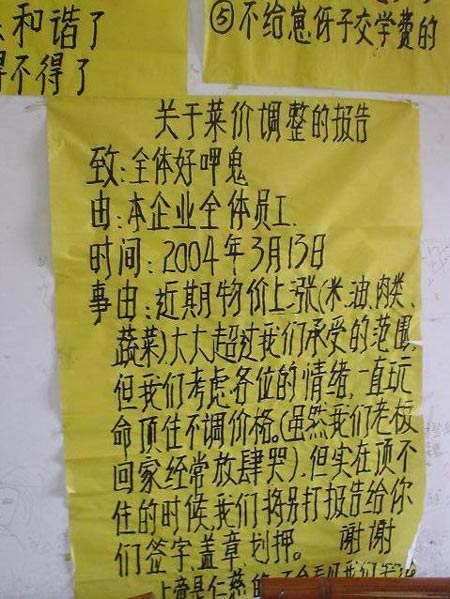 和谐了
不得了
⑤不给崽伢子交学费的
关于菜价调整的报告
致:全体好呷鬼
由:本企业全体员工.
时间:2004年3月13日
事由:近期物价上涨(米.油.肉类、
蔬菜)大大超过我们承受的范围,
但我们考虑各位的情绪,一直玩
命顶住不调价格。(虽然我们老板
回家经常放肆哭).但实在顶不
住的时候,我们将另打报告给你
们签字、盖章划押。 谢谢
上帝是仁慈的